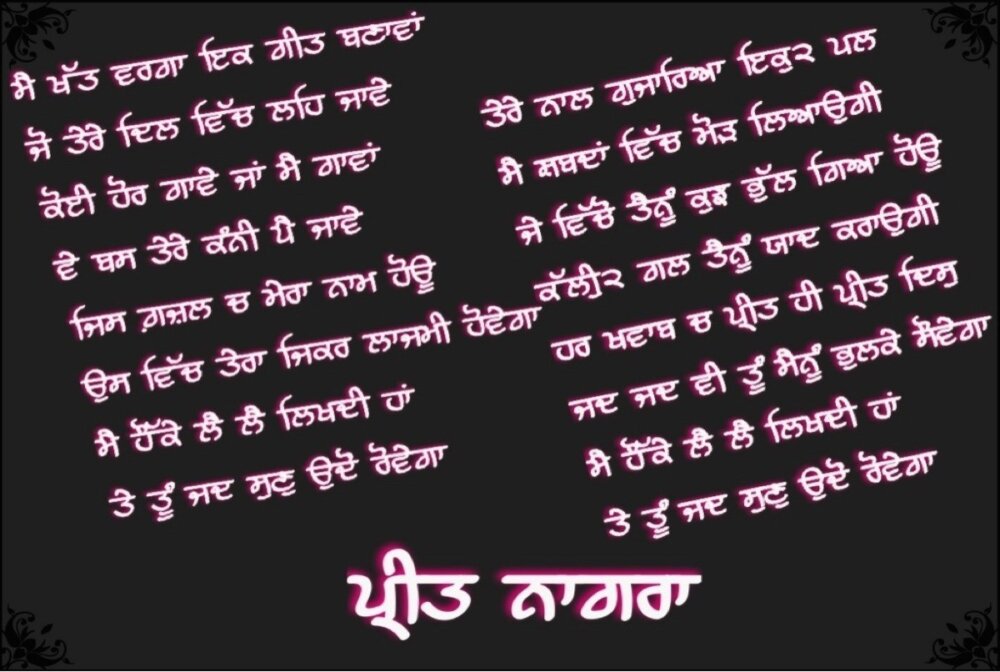 ਸੈ ਖੱਤ ਵਰਗਾ ਇਕ ਗੀਤ ਬਣਾਵਾਂ
ਜੋ ਤੇਰੇ ਦਿਲ ਵਿੱਚ ਲਹਿ ਜਾਵੇ
ਕੋਈ ਹੋਰ ਗਾਵੇ ਜਾਂ ਸੈ ਗਾਵਾਂ
ਵੇ ਬਸ ਤੇਰੇ ਕੰਨੀ ਪੈ ਜਾਵੇ
ਜਿਸ ਗ਼ਜ਼ਲ ਚ ਮੇਰਾ ਨਾਮ ਹੋਊ
ਉਸ ਵਿੱਚ ਤੇਰਾ ਜਿਕਰ ਲਾਜਮੀ ਹੋਵੇਗਾ
ਸੈ ਹੌਂਕੇ ਲੈ ਲੈ ਲਿਖਦੀ ਹਾਂ
ਤੇ ਤੂੰ ਜਦ ਸੁਣੁ ਉਦੋ ਰੋਵੇਗਾ
ਤੇਰੇ ਨਾਲ ਗੁਜਾਰਿਆ ਇਕੁ੨ ਪਲ
ਸੈ ਸ਼ਬਦਾਂ ਵਿੱਚ ਮੋੜ ਲਿਆਉਗੀ
ਜੇ ਵਿੱਚੋ ਤੈਨੂੰ ਕੁਝ ਭੁੱਲ ਗਿਆ ਹੋਊ
ਕੱਲੀ੨ ਗਲ ਤੈਨੂੰ ਯਾਦ ਕਰਾਉਗੀ
ਹਰ ਖਵਾਬ ਚ ਪ੍ਰੀਤ ਹੀ ਪ੍ਰੀਤ ਦਿਸੁ
ਜਦ ਜਦ ਵੀ ਤੂੰ ਸੈਨੂੰ ਭੁਲਕੇ ਸੌਵੇਗਾ
ਸੈ ਹੌਂਕੇ ਲੈ ਲੈ ਲਿਖਦੀ ਹਾਂ
ਤੇ ਤੂੰ ਜਦ ਸੁਣੁ ਉਦੋ ਰੋਵੇਗਾ
ਪ੍ਰੀਤ ਨਾਗਰਾ